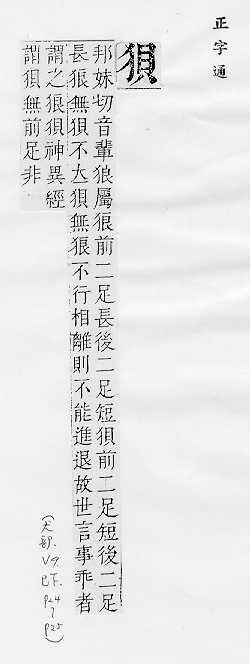 正字通
狽
邦妹切音輩狼屬狼前二足長後二足短狽前二足短後二足
長狼無狽不立狽無狼不行相離則不能進退故世言事乖者
謂之狼狽神異經
謂狽無前足非
(犬部. V9. 巳下. p24 ~ p25)